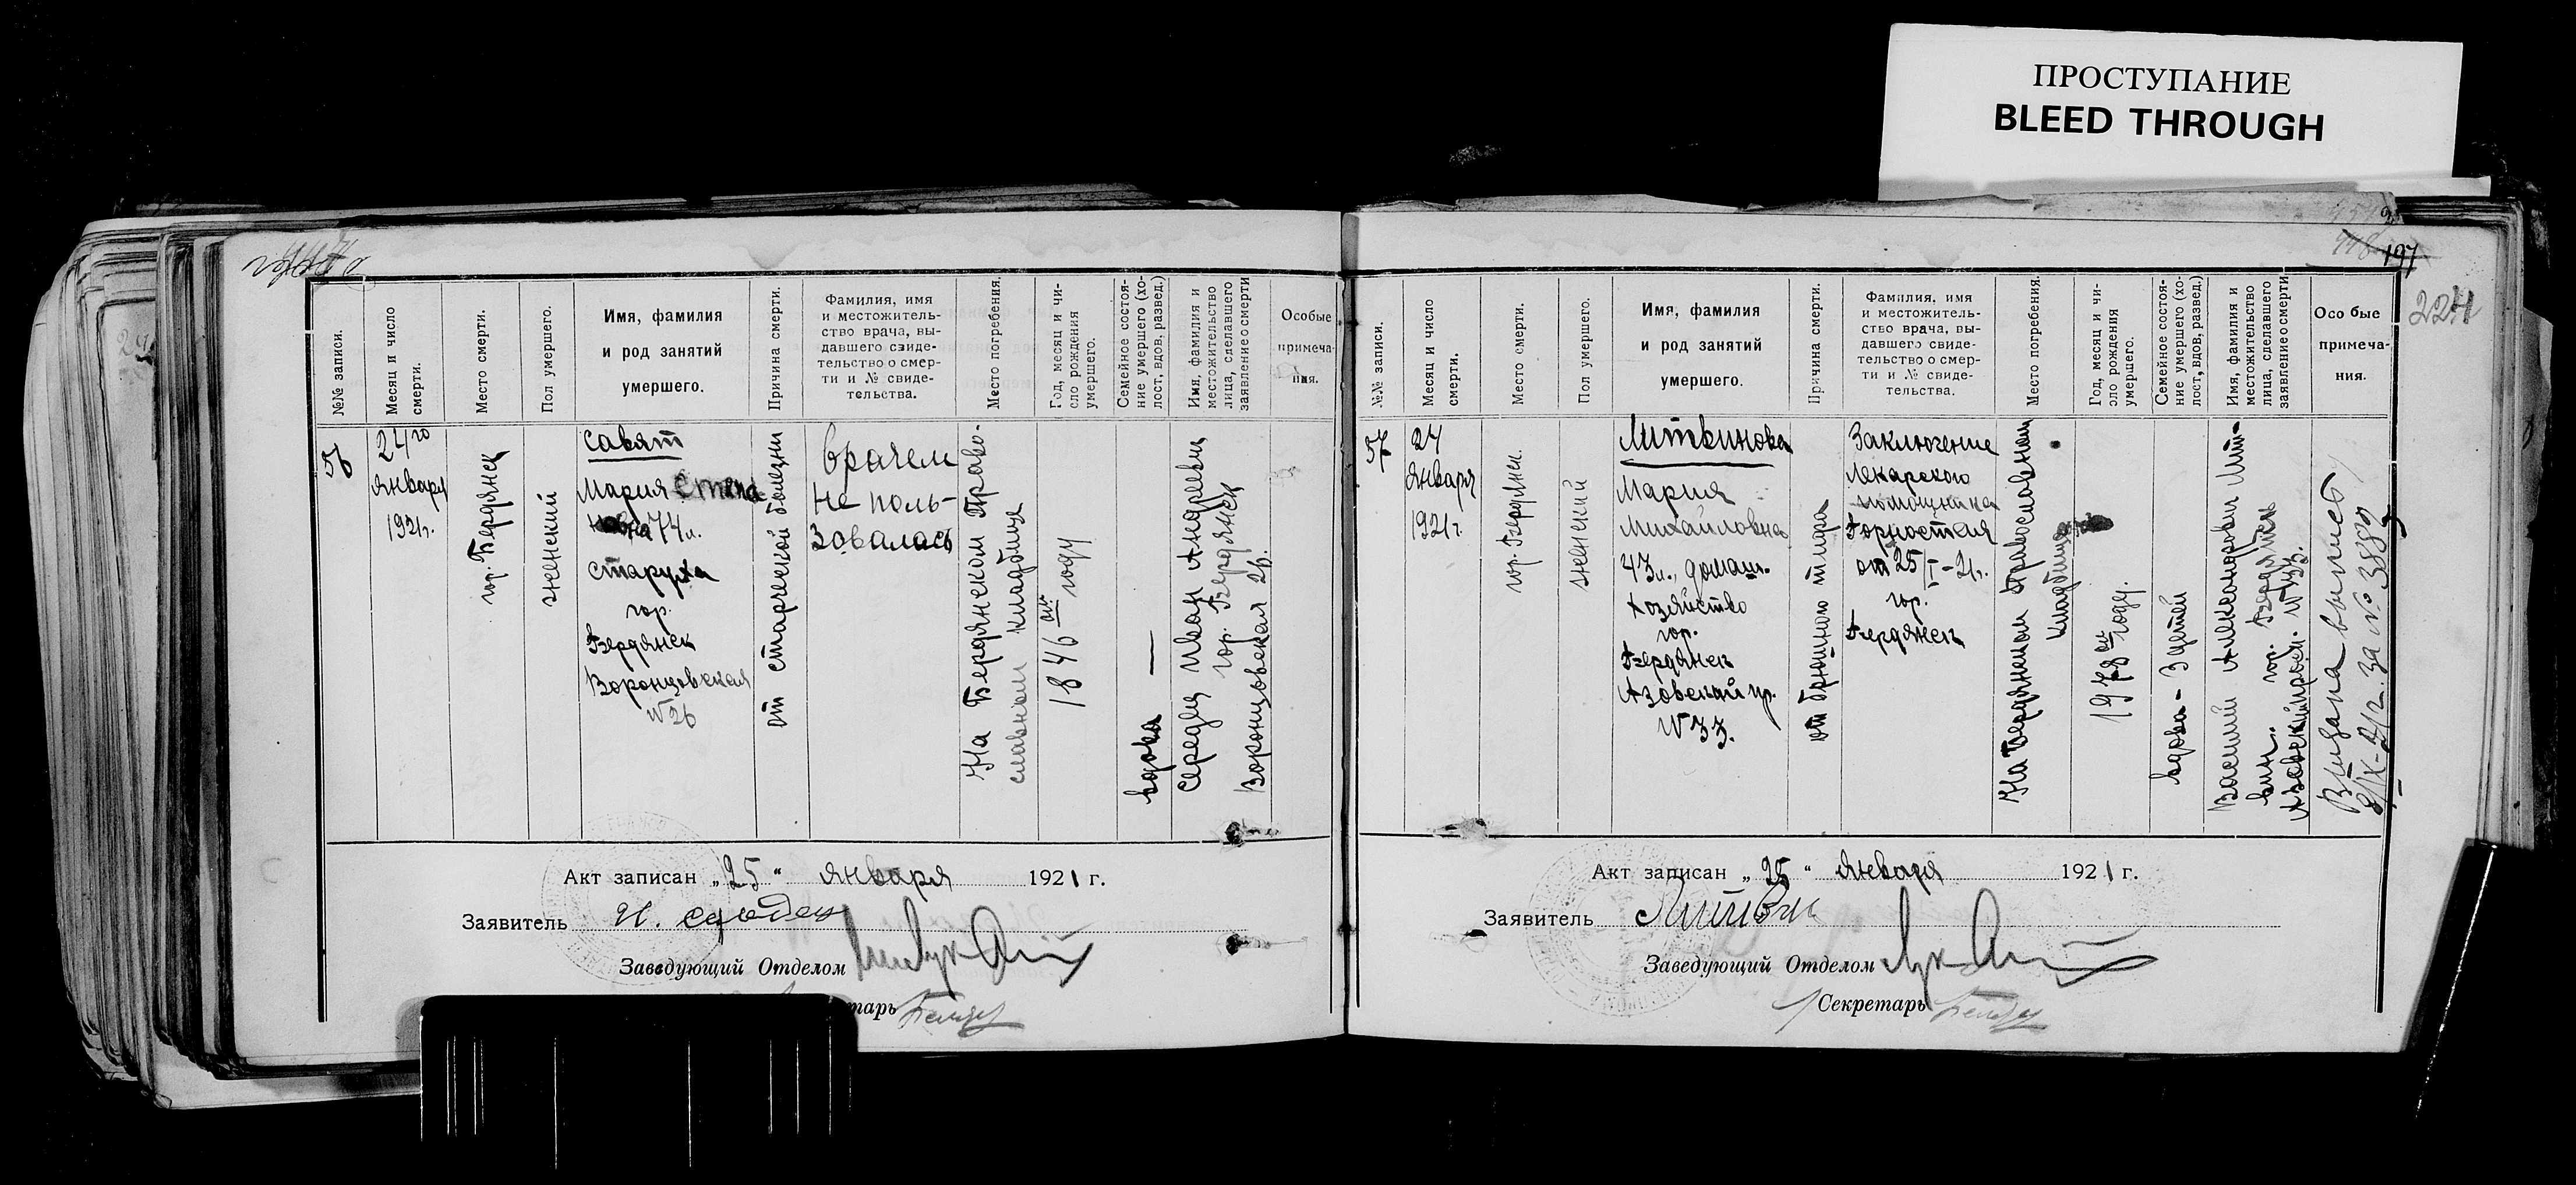 ПРОСТУПАНИЕ
BLEED THROUGH
№№ записи.
Месяц и число
смерти.
Место смерти.
Пол умершего.
Имя, фамилия
и род занятий
умершего.
Причина смерти.
Фамилия, имя
и местожитель-
ство врача, вы-
давшего свиде-
тельство о смер-
ти и № свиде-
тельства.
Место погребения.
Год, месяц и чи-
сло рождения
умершего.
Семейное состоя-
ние умершего (хо-
лост, вдов, развед.)
Имя, фамилия и
местожительство
лица, сделавшего
заявление о смерти
Особые
примеча-
ния.
56
24го
января
1921г.
гор. Бердянск
женский
Савят
Мария Степа
новна 74 л.
старуха
гор.
Бердянск
Воронцовская
№ 26
от старческой болезни
Врачем
не поль-
зовалась
На Бердянском Право-
славном кладбище
1846 ом году
вдова —
Середец Иван Андреевич
гор. Бердянск
Воронцовская 26.
Акт записан „25“ января 1921 г.
Заявитель И. Середец
Заведующий Отделом
тарь
197
224
№№ записи.
Месяц и число
смерти.
Место смерти.
Пол умершего.
Имя, фамилия
и род занятий
умершего.
Причина смерти.
Фамилия, имя
и местожитель-
ство врача, вы-
давшего свиде-
тельство о смер-
ти и № свиде-
тельства.
Место погребения.
Год, месяц и чи-
сло рождения
умершего.
Семейное состоя-
ние умершего (хо-
лост, вдов, развед.)
Имя, фамилия и
местожительство
лица, сделавшего
заявление о смерти
Особые
примеча-
ния.
57
24
января
1921г.
гор. Бердянск.
женский
Литвинова
Мария
Михайловна
43л., домаш.
хозяйство
гор.
Бердянск
Азовский пр.
№ 33.
от брюшного тифа
Заключение
Лекарского
помощника
Горностая
от 25/I-21г.
гор.
Бердянск
На Бердянском Православном
кладбище
1978 ом году.
вдова - 3 детей
Василий Александрович Лит-
вин. гор. Бердянск
Азовский просп. № 33.
Выдана выпись
8/IX-21г. за № 3889
Акт записан „25“ января 1921 г.
Заявитель Литвин
Заведующий Отделом
Секретарь